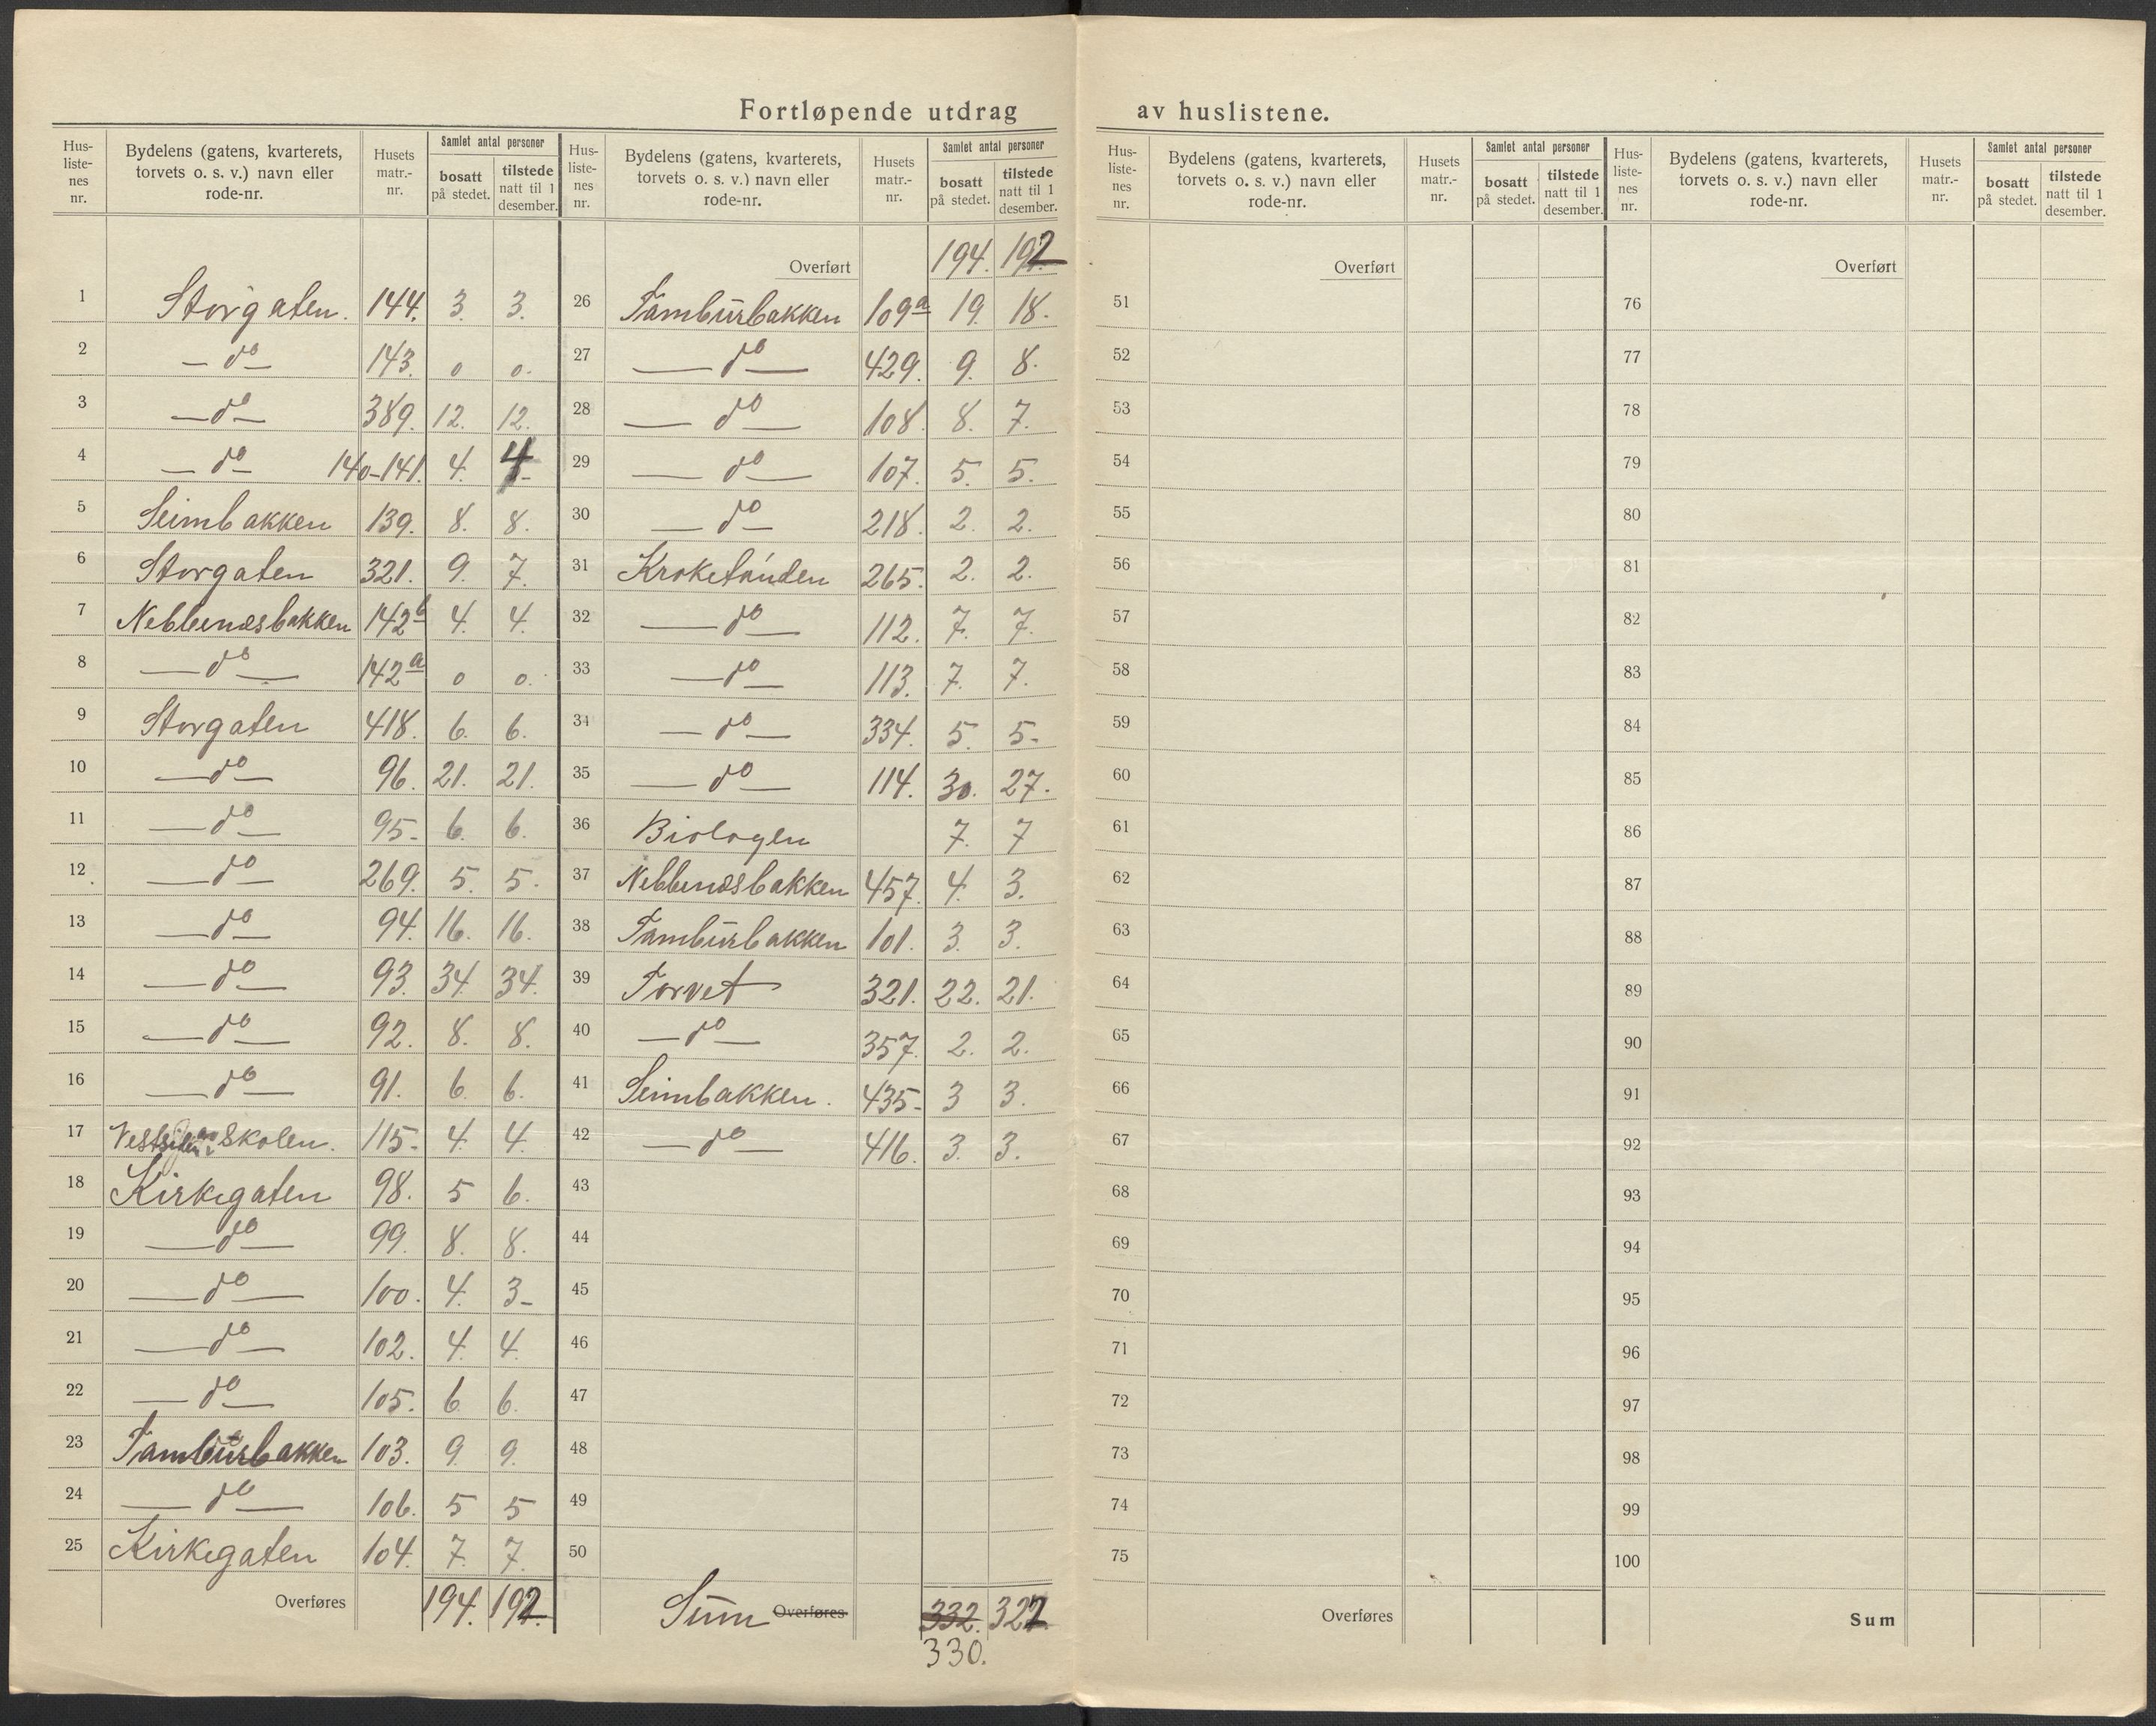 Fortløpende utdrag av huslistene.
Hus-listenes nr. Bydelens (gatens, kvarterets, torvets o. s. v.) navn eller rode-nr. Husets matr.-nr. Samlet antal personer bosatt på stedet. tilstede natt til 1 desember.
1 Storgaten. 144. 3. 3.
2 — do — 143. 0 0.
3 — do — 389. 12. 12.
4 — do — 140-141. 4. 4
5 Seimbakken 139. 8. 8.
6 Storgaten 321. 9. 7.
7 Nebbenesbakken 142b 4. 4.
8 — do — 142a 0 0.
9 Storgaten 418. 6. 6.
10 — do — 96. 21. 21.
11 — do — 95- 6. 6.
12 — do — 269. 5. 5.
13 — do — 94. 16. 16.
14 — do — 93. 34. 34.
15 — do — 92. 8. 8.
16 — do — 91. 6. 6.
17 Skolen. 115- 4. 4.
18 Kirkegaten 98. 5 6.
19 — do — 99. 8. 8.
20 — do — 100. 4. 3-
21 — do — 102. 4. 4.
22 — do — 105. 6 6.
23 Tamburbakken 103. 9. 9.
24 — do — 106. 5 5
25 Kirkegaten 104. 7. 7.
Overføres 194. 192
Hus-listenes nr. Bydelens (gatens, kvarterets, torvets o. s. v.) navn eller rode-nr. Husets matr.-nr. Samlet antal personer bosatt på stedet. tilstede natt til 1 desember.
Overført 194. 192
26 Tamburbakken 109a 19. 18.
27 — do — 429. 9. 8.
28 — do — 108. 8. 7.
29 — do — 107. 5. 5.
30 — do — 218. 2. 2.
31 265. 2. 2.
32 — do — 112. 7. 7.
33 — do — 113. 7. 7.
34 — do — 334. 5. 5-
35 — do — 114. 30. 27.
36 Biologen 7. 7
37 Nebbenesbakken 457. 4. 3.
38 Tamburbakken 101. 3. 3.
39 Torvet 321. 22. 21.
40 — do — 357. 2. 2.
41 Seimbakken. 435- 3 3.
42 — do — 416. 3. 3.
43
44
45
46
47
48
49
50
Sum Overføres 332. 322
330.
Hus-listenes nr. Bydelens (gatens, kvarterets, torvets o. s. v.) navn eller rode-nr. Husets matr.-nr. Samlet antal personer bosatt på stedet. tilstede natt til 1 desember.
Overført
51
52
53
54
55
56
57
58
59
60
61
62
63
64
65
66
67
68
69
70
71
72
73
74
75
Overføres
Hus-listenes nr. Bydelens (gatens, kvarterets, torvets o. s. v.) navn eller rode-nr. Husets matr.-nr. Samlet antal personer bosatt på stedet. tilstede natt til 1 desember.
Overført
76
77
78
79
80
81
82
83
84
85
86
87
88
89
90
91
92
93
94
95
96
97
98
99
100
Sum